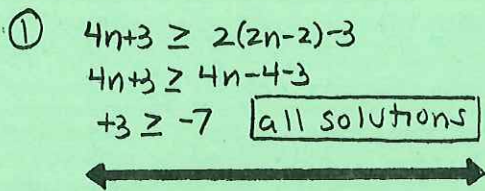 ① 4n+3 ≥ 2(2n-2)-3
4n+3 ≥ 4n-4-3
+3 ≥ -7 all solutions